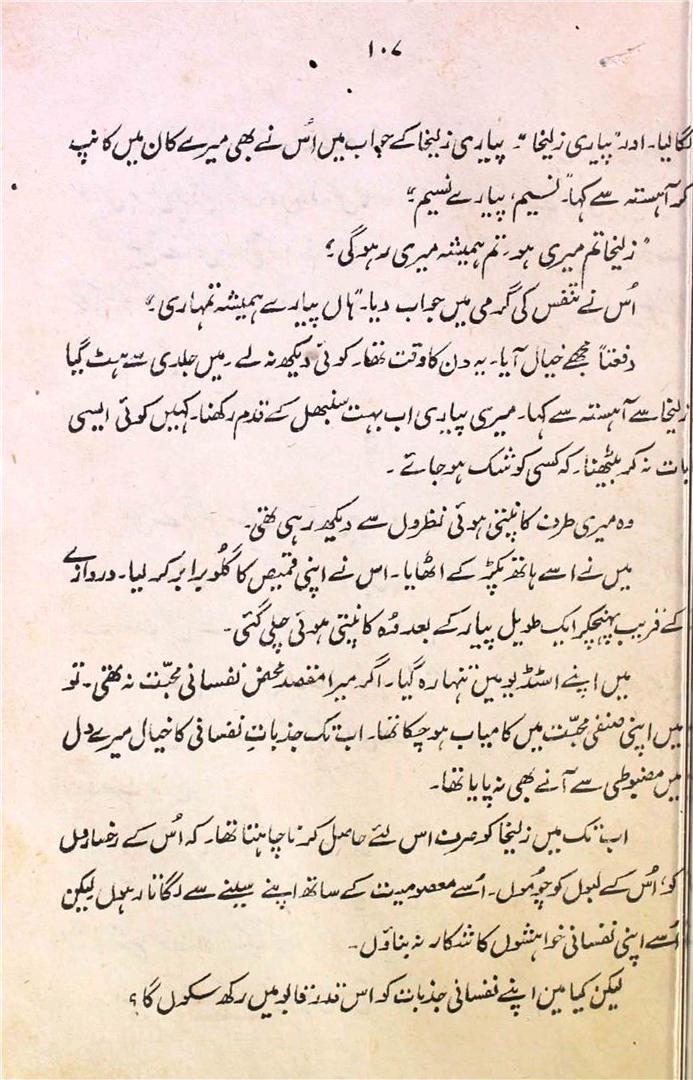 ۱۰۷
لگالیا۔ اور "پیاری زلیخا"۔ پیاری زلیخا کے جواب میں اُس نے بھی میرے کان میں کانپ
کر آہستہ سے کہا۔ "نسیم، پیارے نسیم"
"زلیخا تم میری ہو۔ تم ہمیشہ میری رہو گی"؟
اُس نے تنفس کی گرمی میں جواب دیا۔ "ہاں پیارے ہمیشہ تمہاری"
دفعتاً مجھے خیال آیا۔ یہ دن کا وقت تھا۔ کوئی دیکھ نہ لے۔ میں جلدی سے ہٹ گیا
زلیخا سے آہستہ سے کہا۔ میری پیاری اب بہت سنبھل کے قدم رکھنا۔ کہیں کوئی ایسی
بات نہ کر بیٹھنا۔ کہ کسی کو شک ہو جائے۔
وہ میری طرف کانپتی ہوئی نظروں سے دیکھ رہی تھی۔
میں نے اسے ہاتھ پکڑ کے اٹھایا۔ اس نے اپنی قمیص کا گلو برابر کر لیا۔ دروازے
کے قریب پہنچکر ایک طویل پیار کے بعد وُہ کانپتی ہوئی چلی گئی۔
میں اپنے اسٹڈیو میں تنہا رہ گیا۔ اگر میرا مقصد محض نفسانی محبّت نہ تھی۔ تو
میں اپنی صنفی محبّت میں کامیاب ہو چکا تھا۔ اب تک جذباتِ نفسانی کا خیال میرے دل
میں مضبوطی سے آنے بھی نہ پایا تھا۔
اب تک میں زلیخا کو صرف اس لئے حاصل کرنا چاہتا تھا۔ کہ اُس کے رخساروں
کو، اُس کے لبوں کو چوُموں۔ اُسے معصومیت کے ساتھ اپنے سینے سے لگاتا رہوں لیکن
اُسے اپنی نفسانی خواہشوں کا شکار نہ بناؤں۔
لیکن کیا میں اپنے نفسانی جذبات کو اس قدر قابو میں رکھ سکوں گا؟